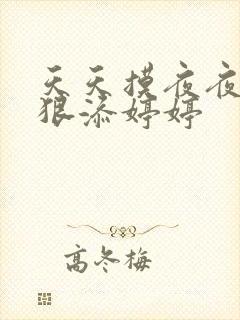 天天摸夜夜
狠添婷婷
高冬梅